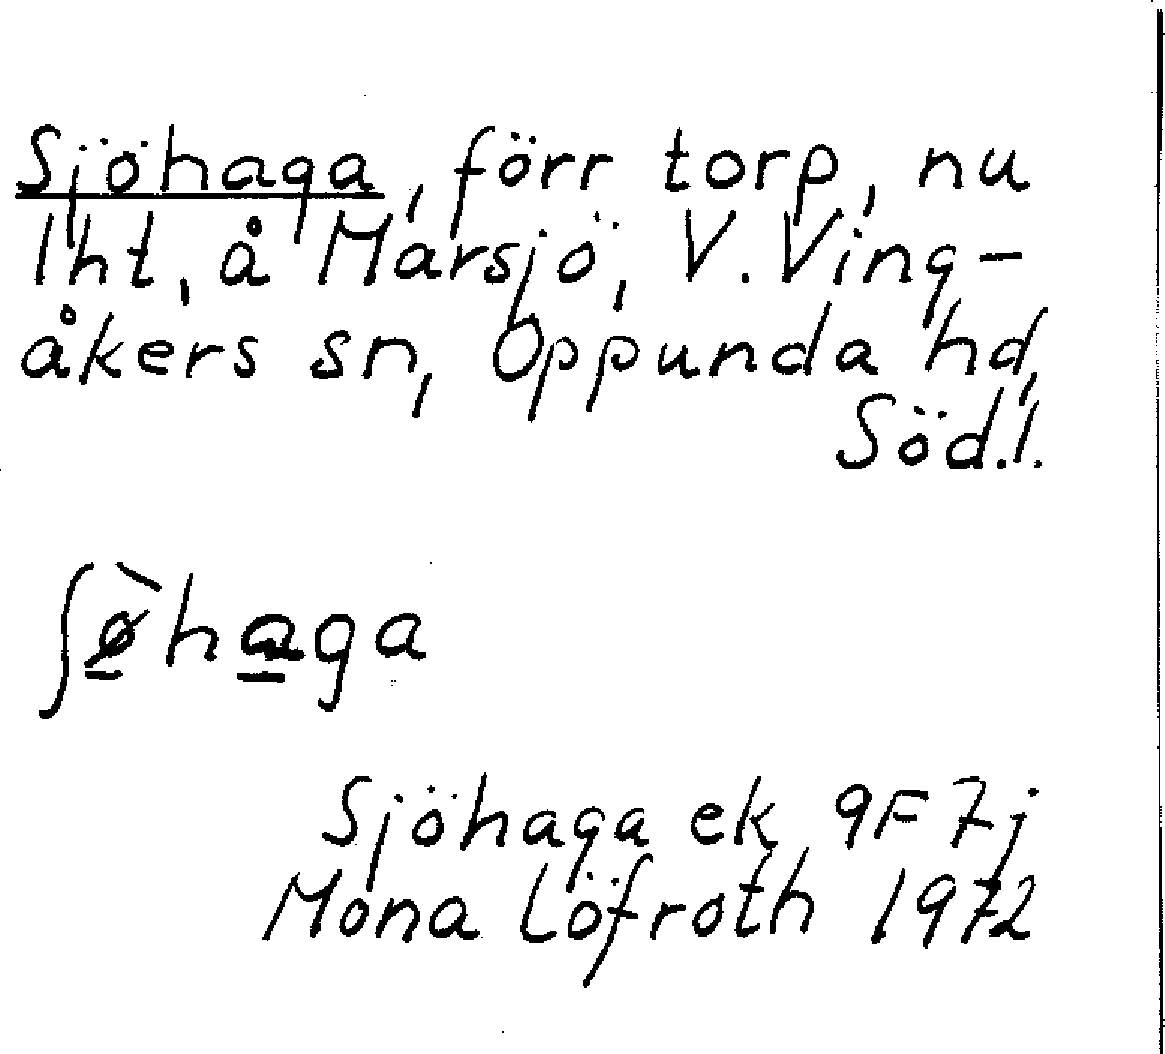 Sjöhaga, förr torp, nu
lht, å Marsjö, V. Ving-
åkers sn, Oppunda hd,
Söd.l.
ʃø̠̀ha̠ga
Sjöhaga ek 9F 7j
Mona Löfroth 1972